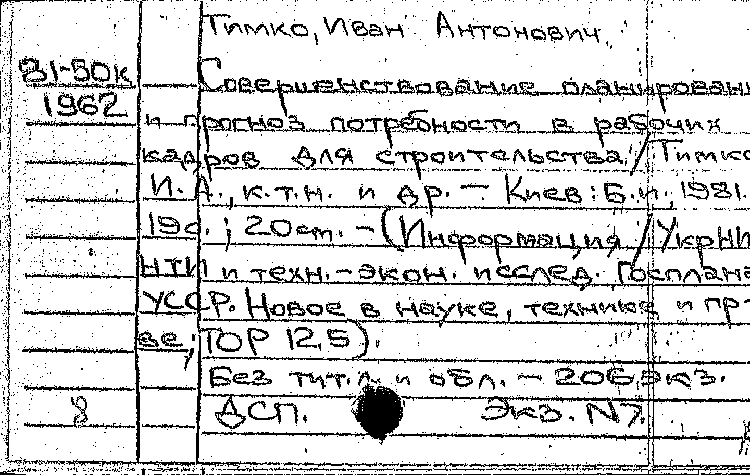 Тимко, Иван Антонович.
81-50к
Совершенствование планировани
1962
и прогноз потребности в рабочих
кадров для строительства / Тимко
И. А., к.т.н. и др. — Киев: Б.и., 1981.
19с.; 20см. — (Информация / УкрНИ
НТИ и техн.-экон. исслед. Госплана
УССР. Новое в науке, технике и пр-
ве; ТОР 12.5).
Без тит.л. и обл. — 206 экз.
8 ДСП. Экз. N7.